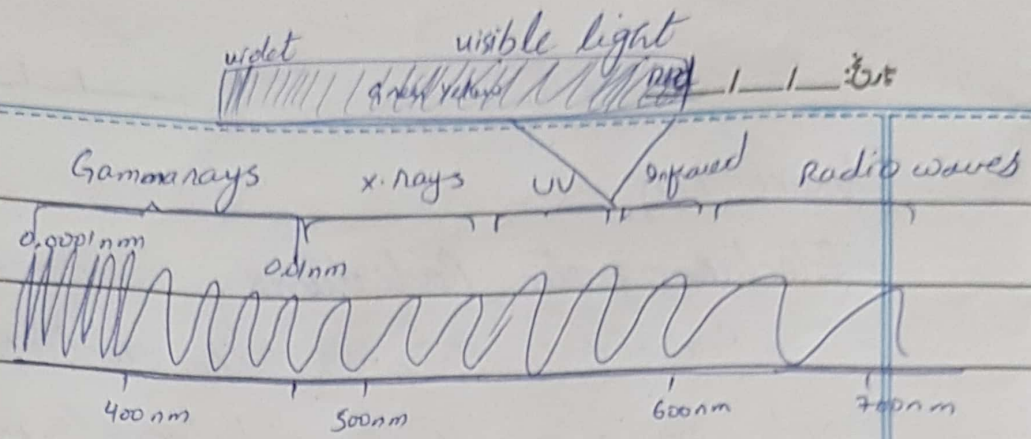 visible light
violet
Red
Gamma rays x-rays UV Infrared Radio waves
0.0001nm
0.01nm
400nm 500nm 600nm 700nm